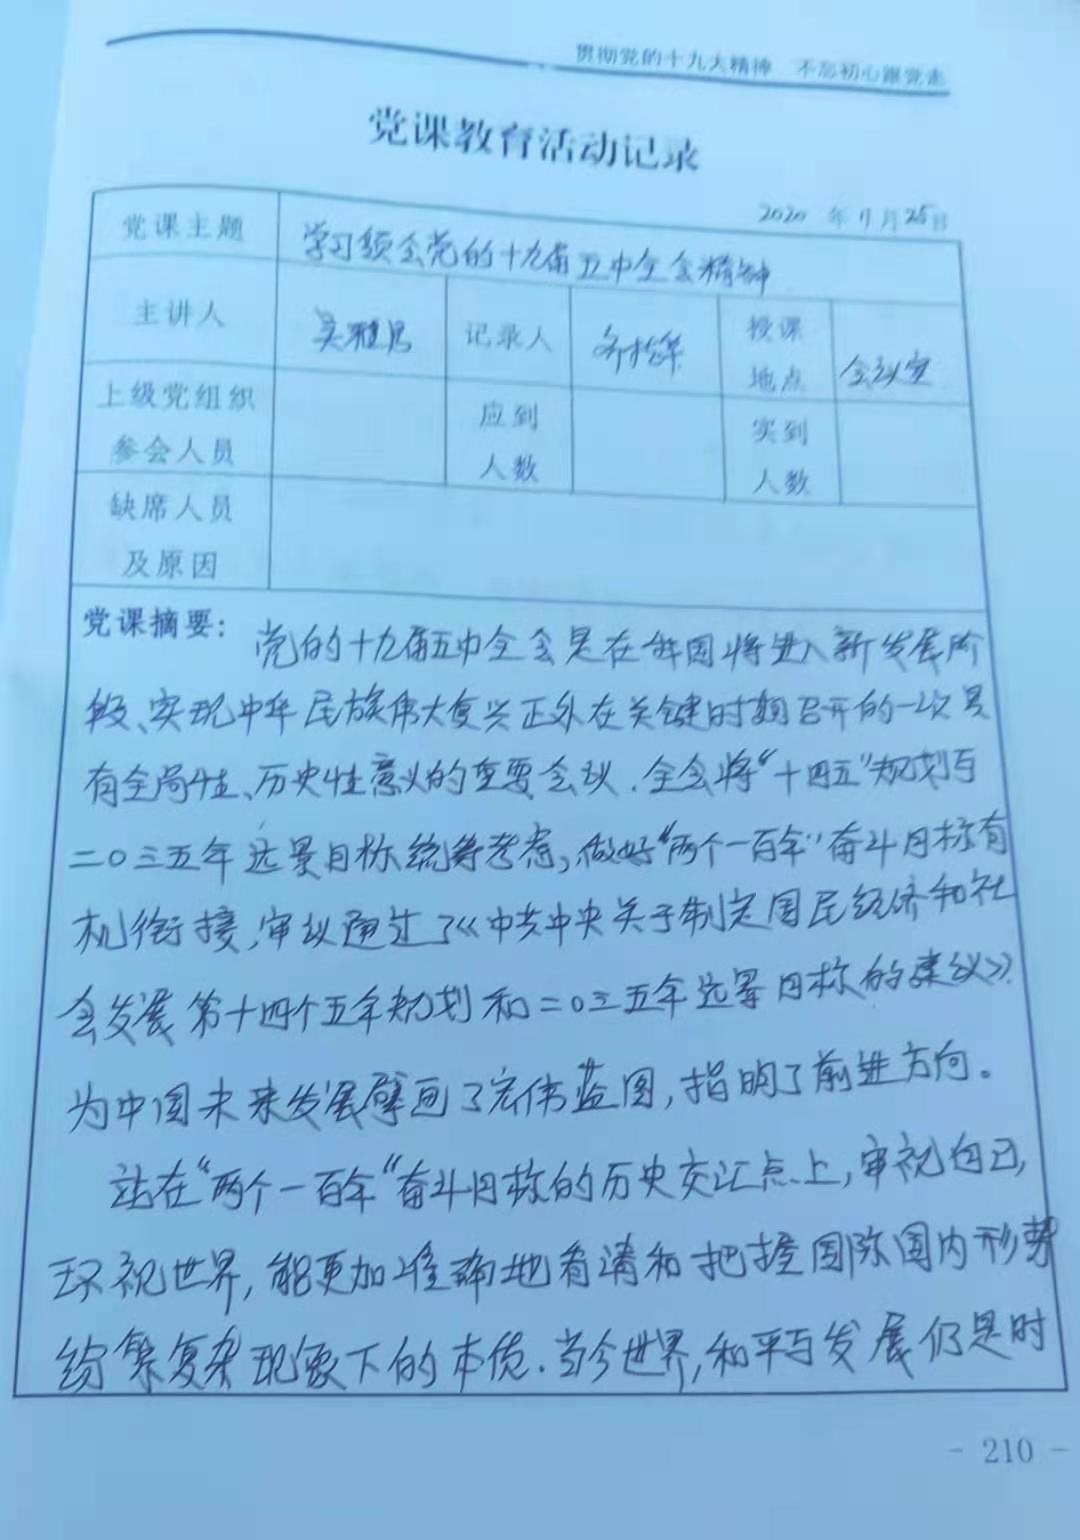 贯彻党的十九大精神 不忘初心跟党走
党课教育活动记录
2020 年 11 月 25 日
党课主题 学习领会党的十九届五中全会精神
主讲人 记录人 授课地点 会议室
上级党组织参会人员 应到人数 实到人数
缺席人员及原因
党课摘要: 党的十九届五中全会是在我国将进入新发展阶
段、实现中华民族伟大复兴正处在关键时期召开的一次具
有全局性、历史性意义的重要会议.全会将“十四五”规划与
二〇三五年远景目标统筹考虑,做好“两个一百年”奋斗目标有
机衔接,审议通过了《中共中央关于制定国民经济和社
会发展第十四个五年规划和二〇三五年远景目标的建议》.
为中国未来发展擘画了宏伟蓝图,指明了前进方向。
站在“两个一百年”奋斗目标的历史交汇点上,审视自己,
环视世界,能更加准确地看清和把握国际国内形势
纷繁复杂现象下的本质.当今世界,和平与发展仍是时
- 210 -